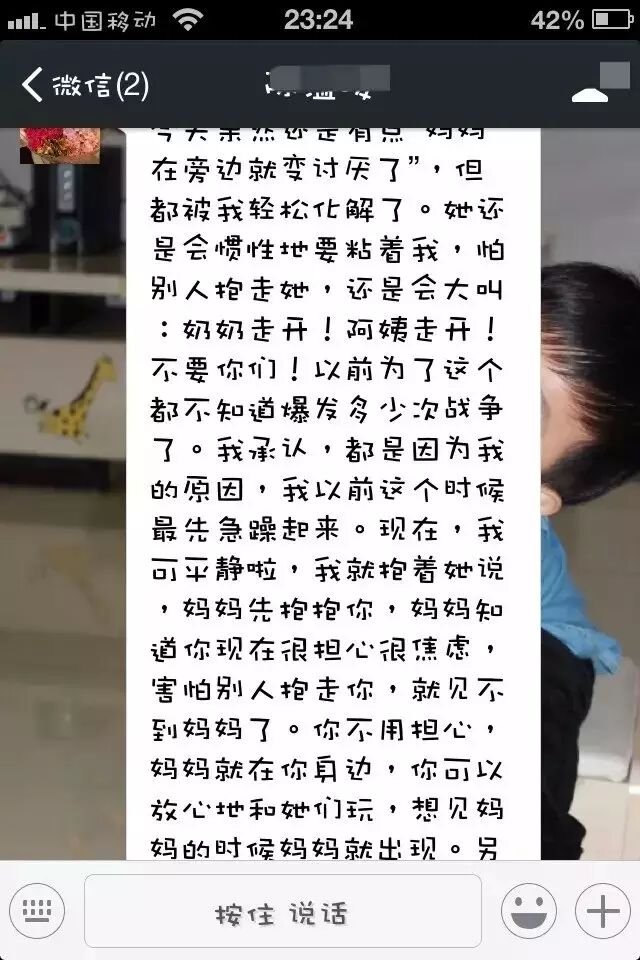 中国移动 23:24 42%
微信(2)
今天果然还是有点“妈妈
在旁边就变讨厌了”，但
都被我轻松化解了。她还
是会惯性地要粘着我，怕
别人抱走她，还是会大叫
：奶奶走开！阿姨走开！
不要你们！以前为了这个
都不知道爆发多少次战争
了。我承认，都是因为我
的原因，我以前这个时候
最先急躁起来。现在，我
可平静啦，我就抱着她说
，妈妈先抱抱你，妈妈知
道你现在很担心很焦虑，
害怕别人抱走你，就见不
到妈妈了。你不用担心，
妈妈就在你身边，你可以
放心地和她们玩，想见妈
妈的时候妈妈就出现。另
按住 说话